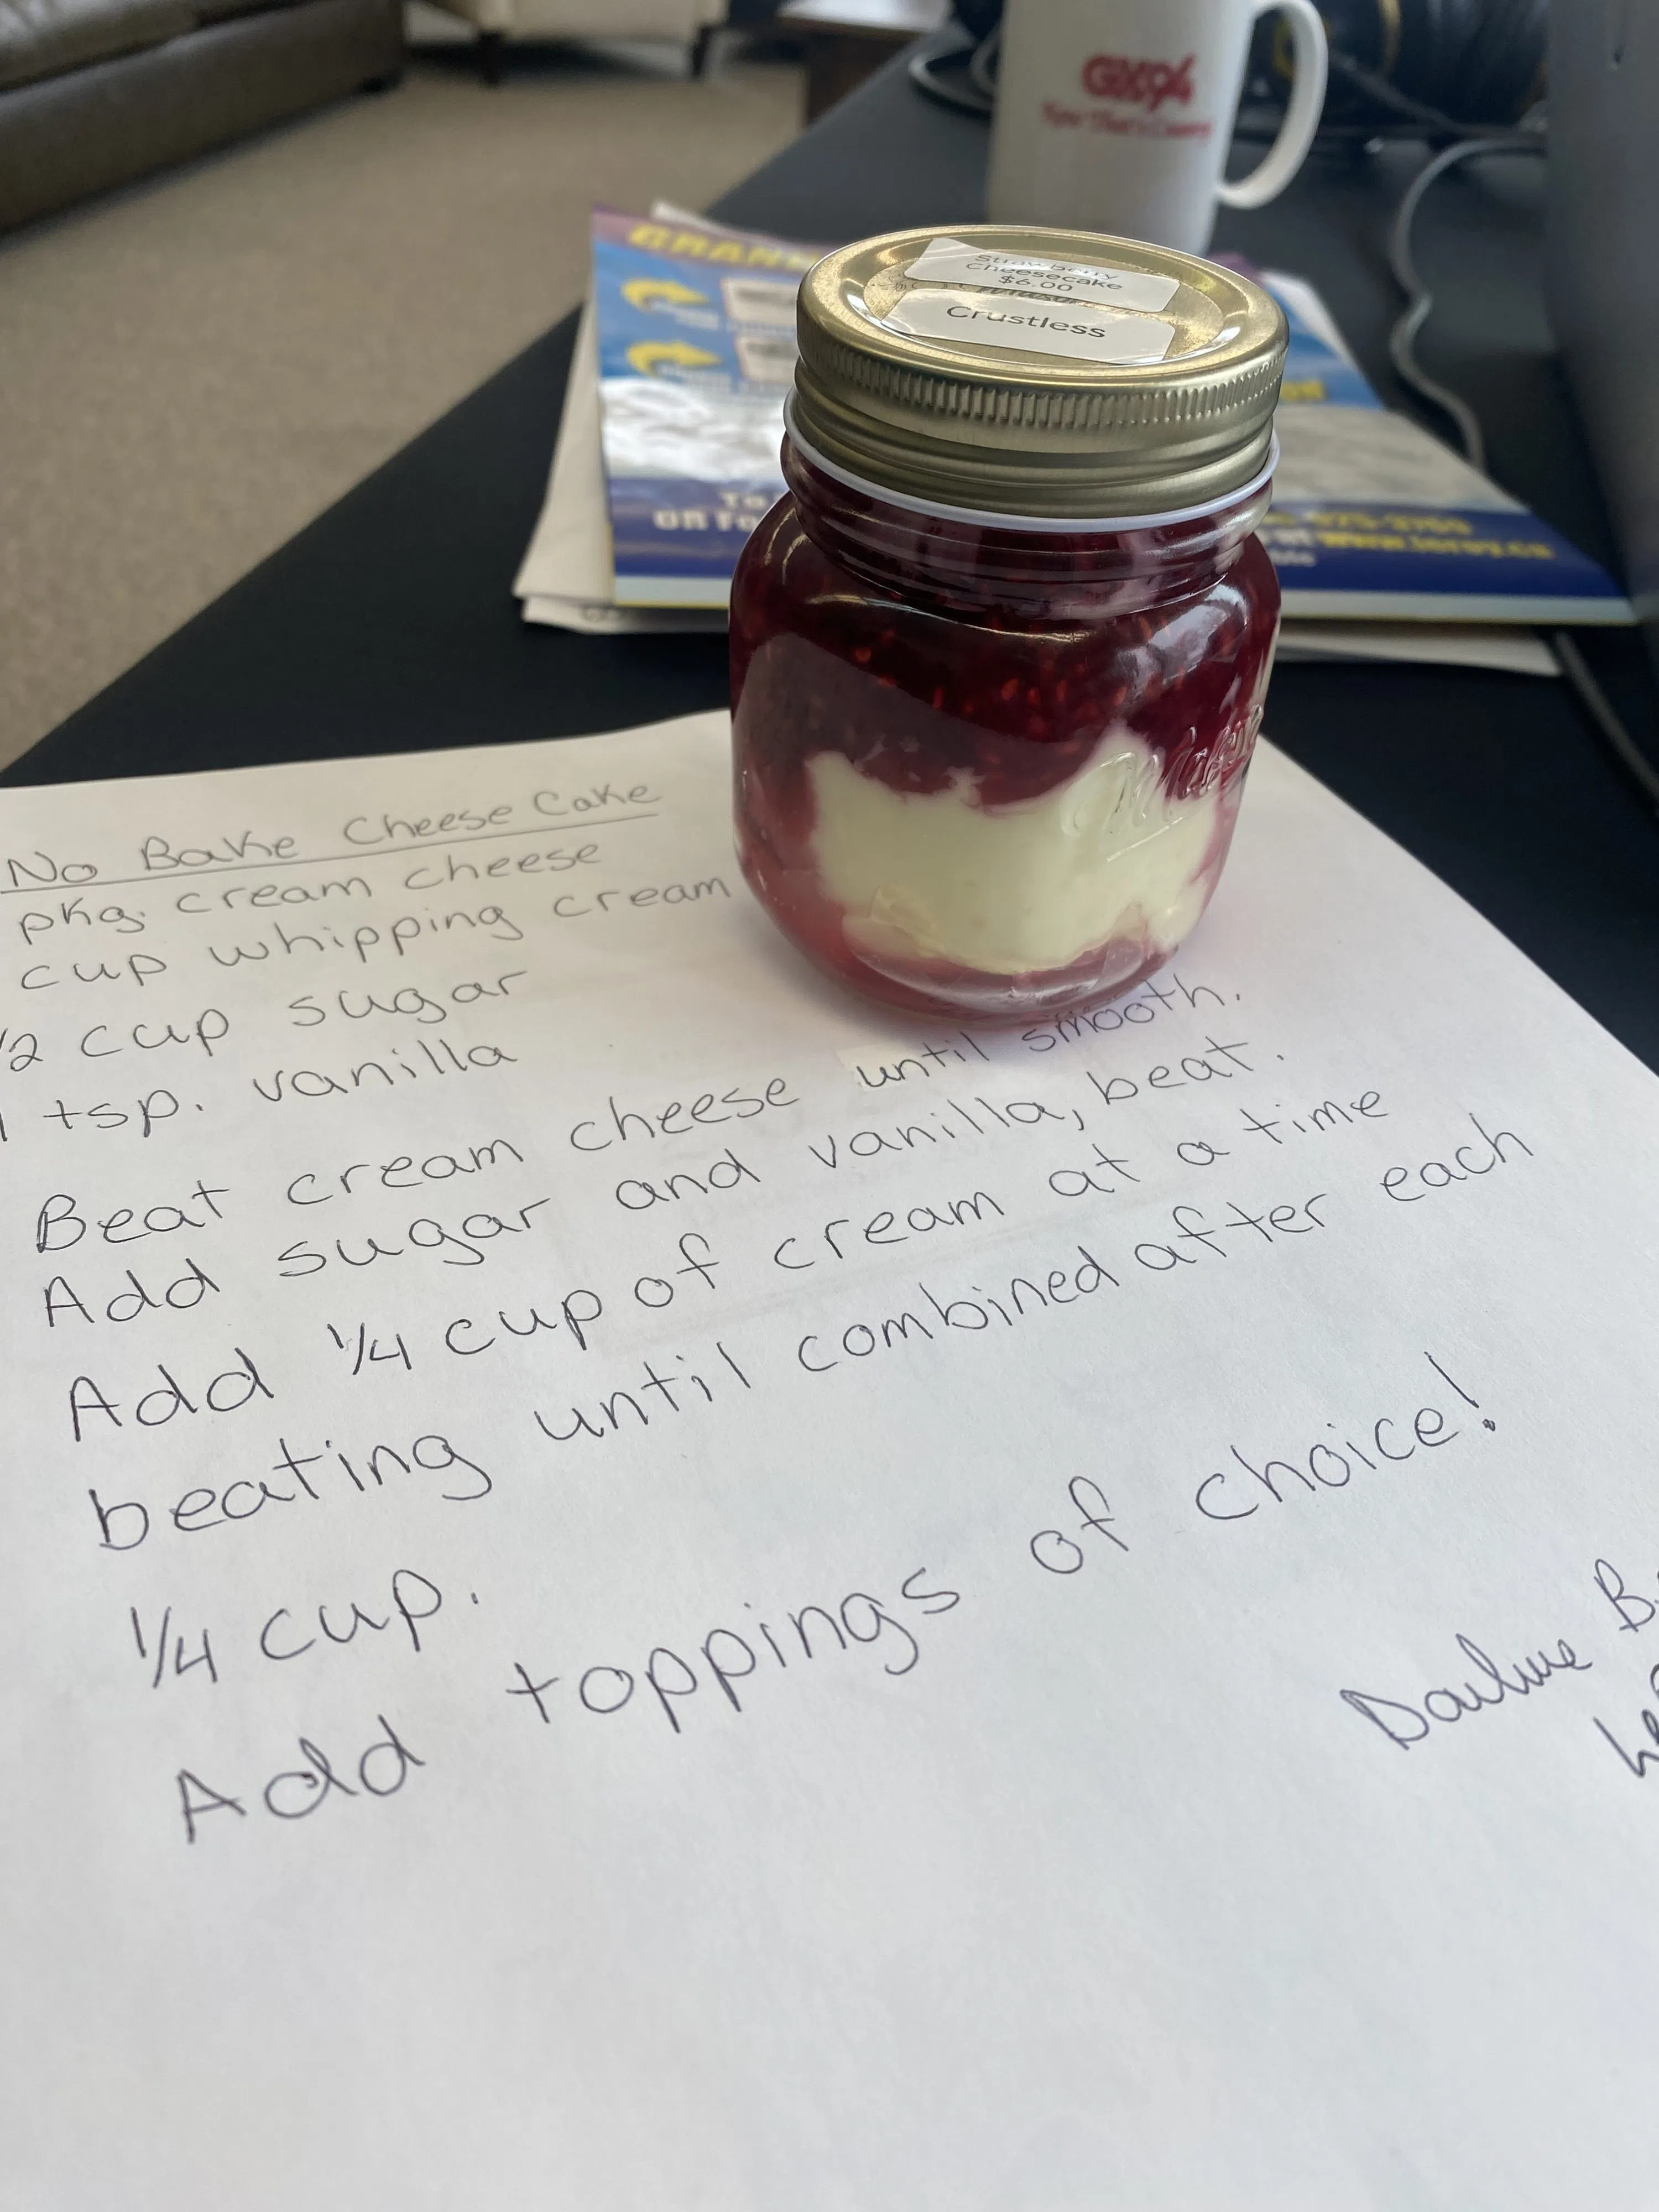 GX94
Strawberry
Cheesecake
$6.00
Crustless
Mason
No Bake Cheese Cake
pkg. cream cheese
cup whipping cream
1/2 cup sugar
1 tsp. vanilla
Beat cream cheese until smooth.
Add sugar and vanilla, beat.
Add 1/4 cup of cream at a time
beating until combined after each
1/4 cup.
Add toppings of choice!